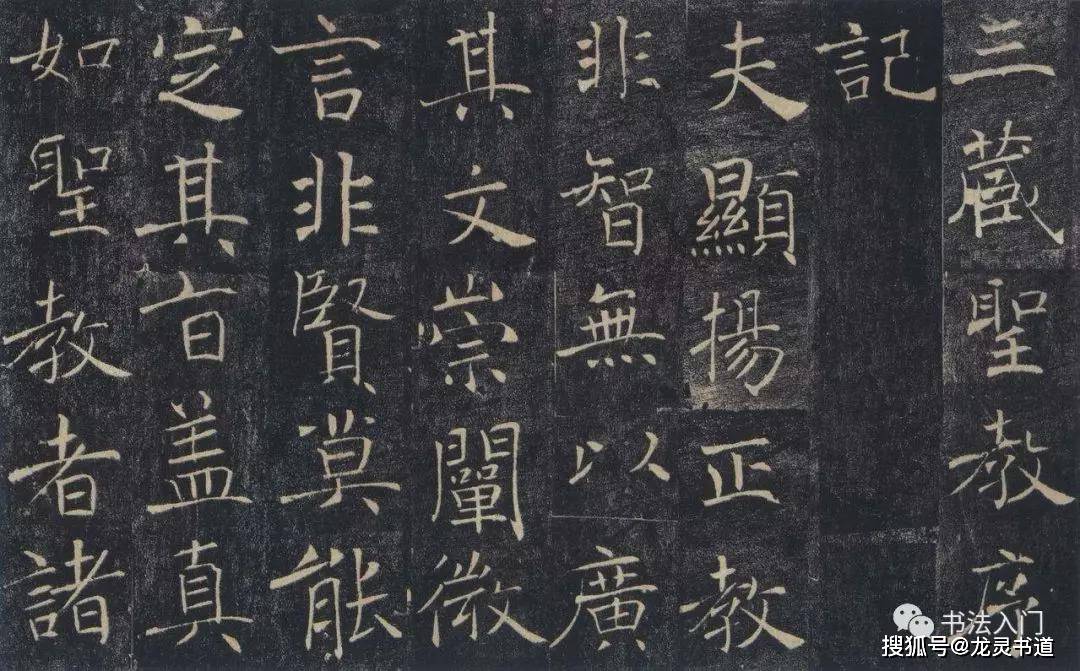 三藏聖教序
記
夫顯揚正教
非智無以廣
其文崇闡微
言非賢莫能
定其旨盖真
如聖教者諸
书法入门
搜狐号@龙灵书道